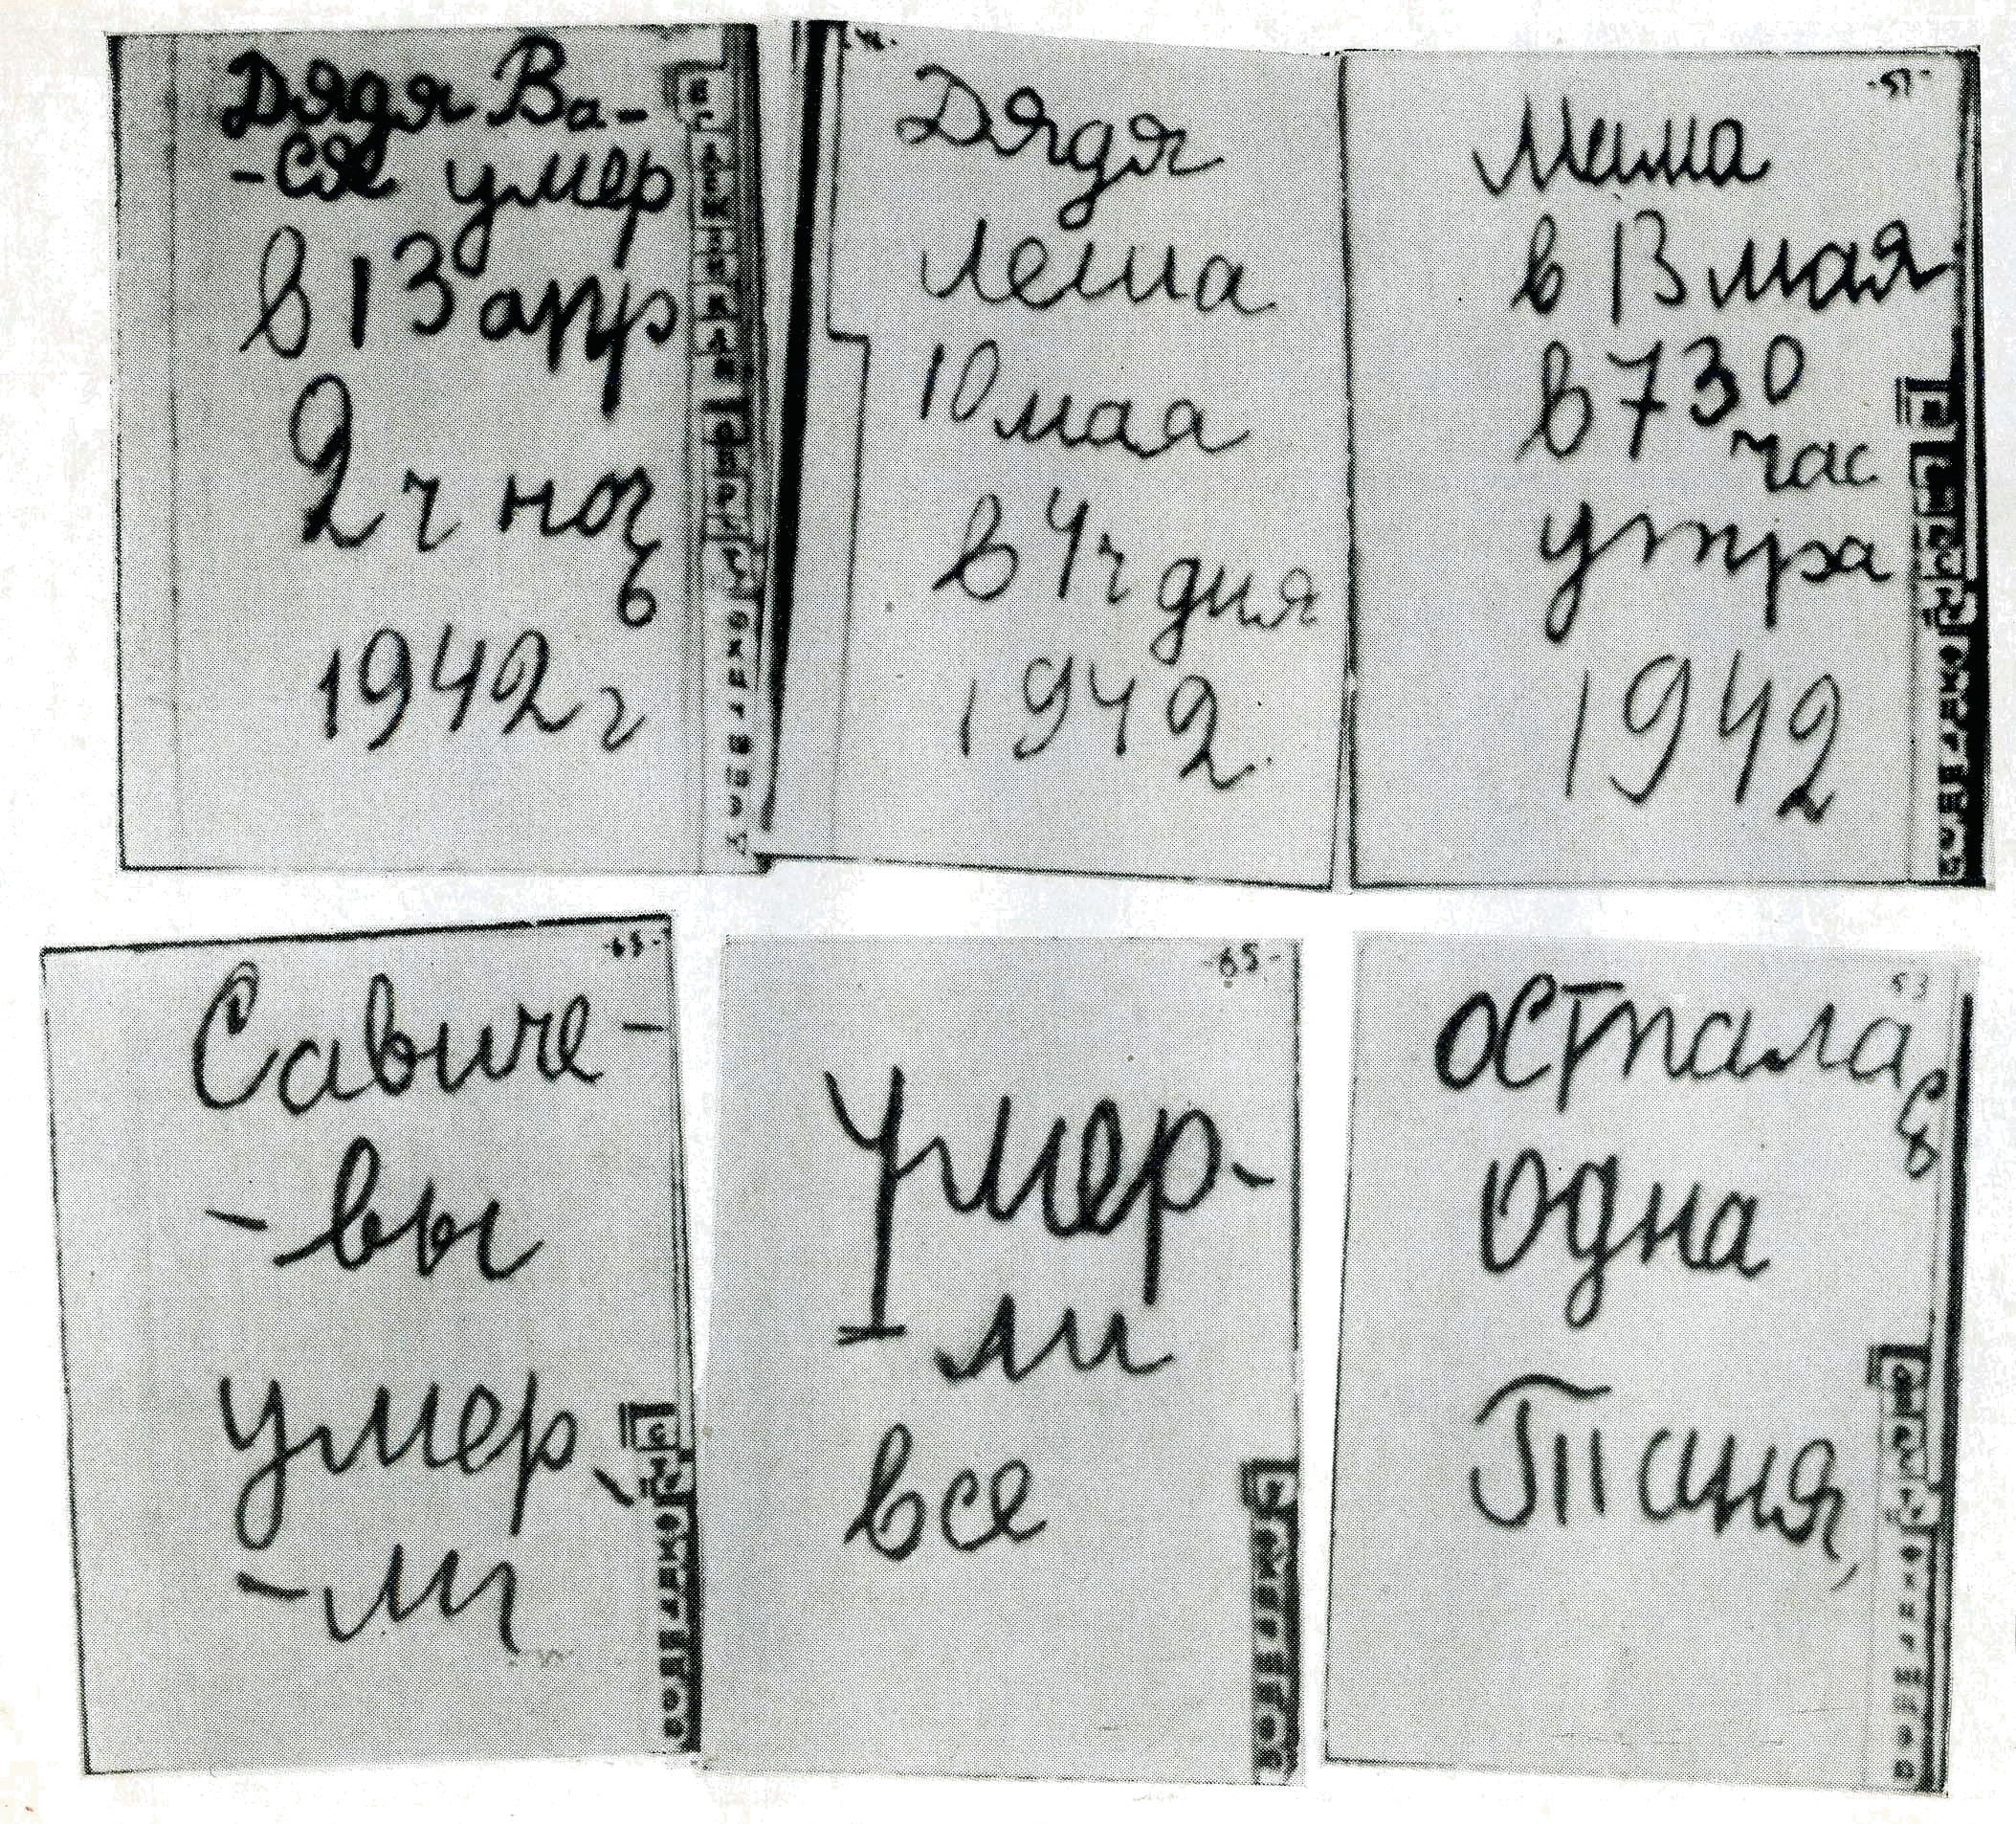 Дядя Ва-
-ся умер
в 13 апр
2 ч ноч
ь
1942 г
Дядя
Леша
10 мая
в 4 ч дня
1942
Мама
в 13 мая
в 730
час
утра
1942
Савиче-
-вы
умер
-ли
Умер-
-ли
все
Остала
сь
одна
Таня